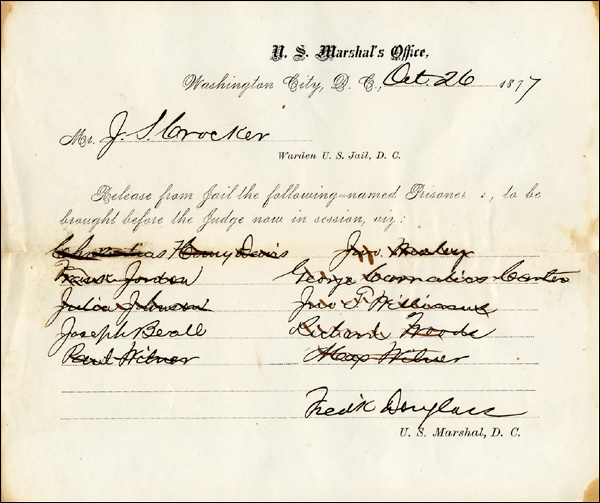 U. S. Marshal's Office,
Washington City, D. C., Oct. 26 1877
Mr. J. S. Crocker
Warden U. S. Jail, D. C.
Release from Jail the following-named Prisoners, to be
brought before the Judge now in session, viz:
Henry Davis Jno.
Frank Jordon George Cornelius Carter
Julia Johnson Jno F Williams
Joseph Beall Richard Woods
Paul Witner Max Witner
Fredk Douglass
U. S. Marshal, D. C.